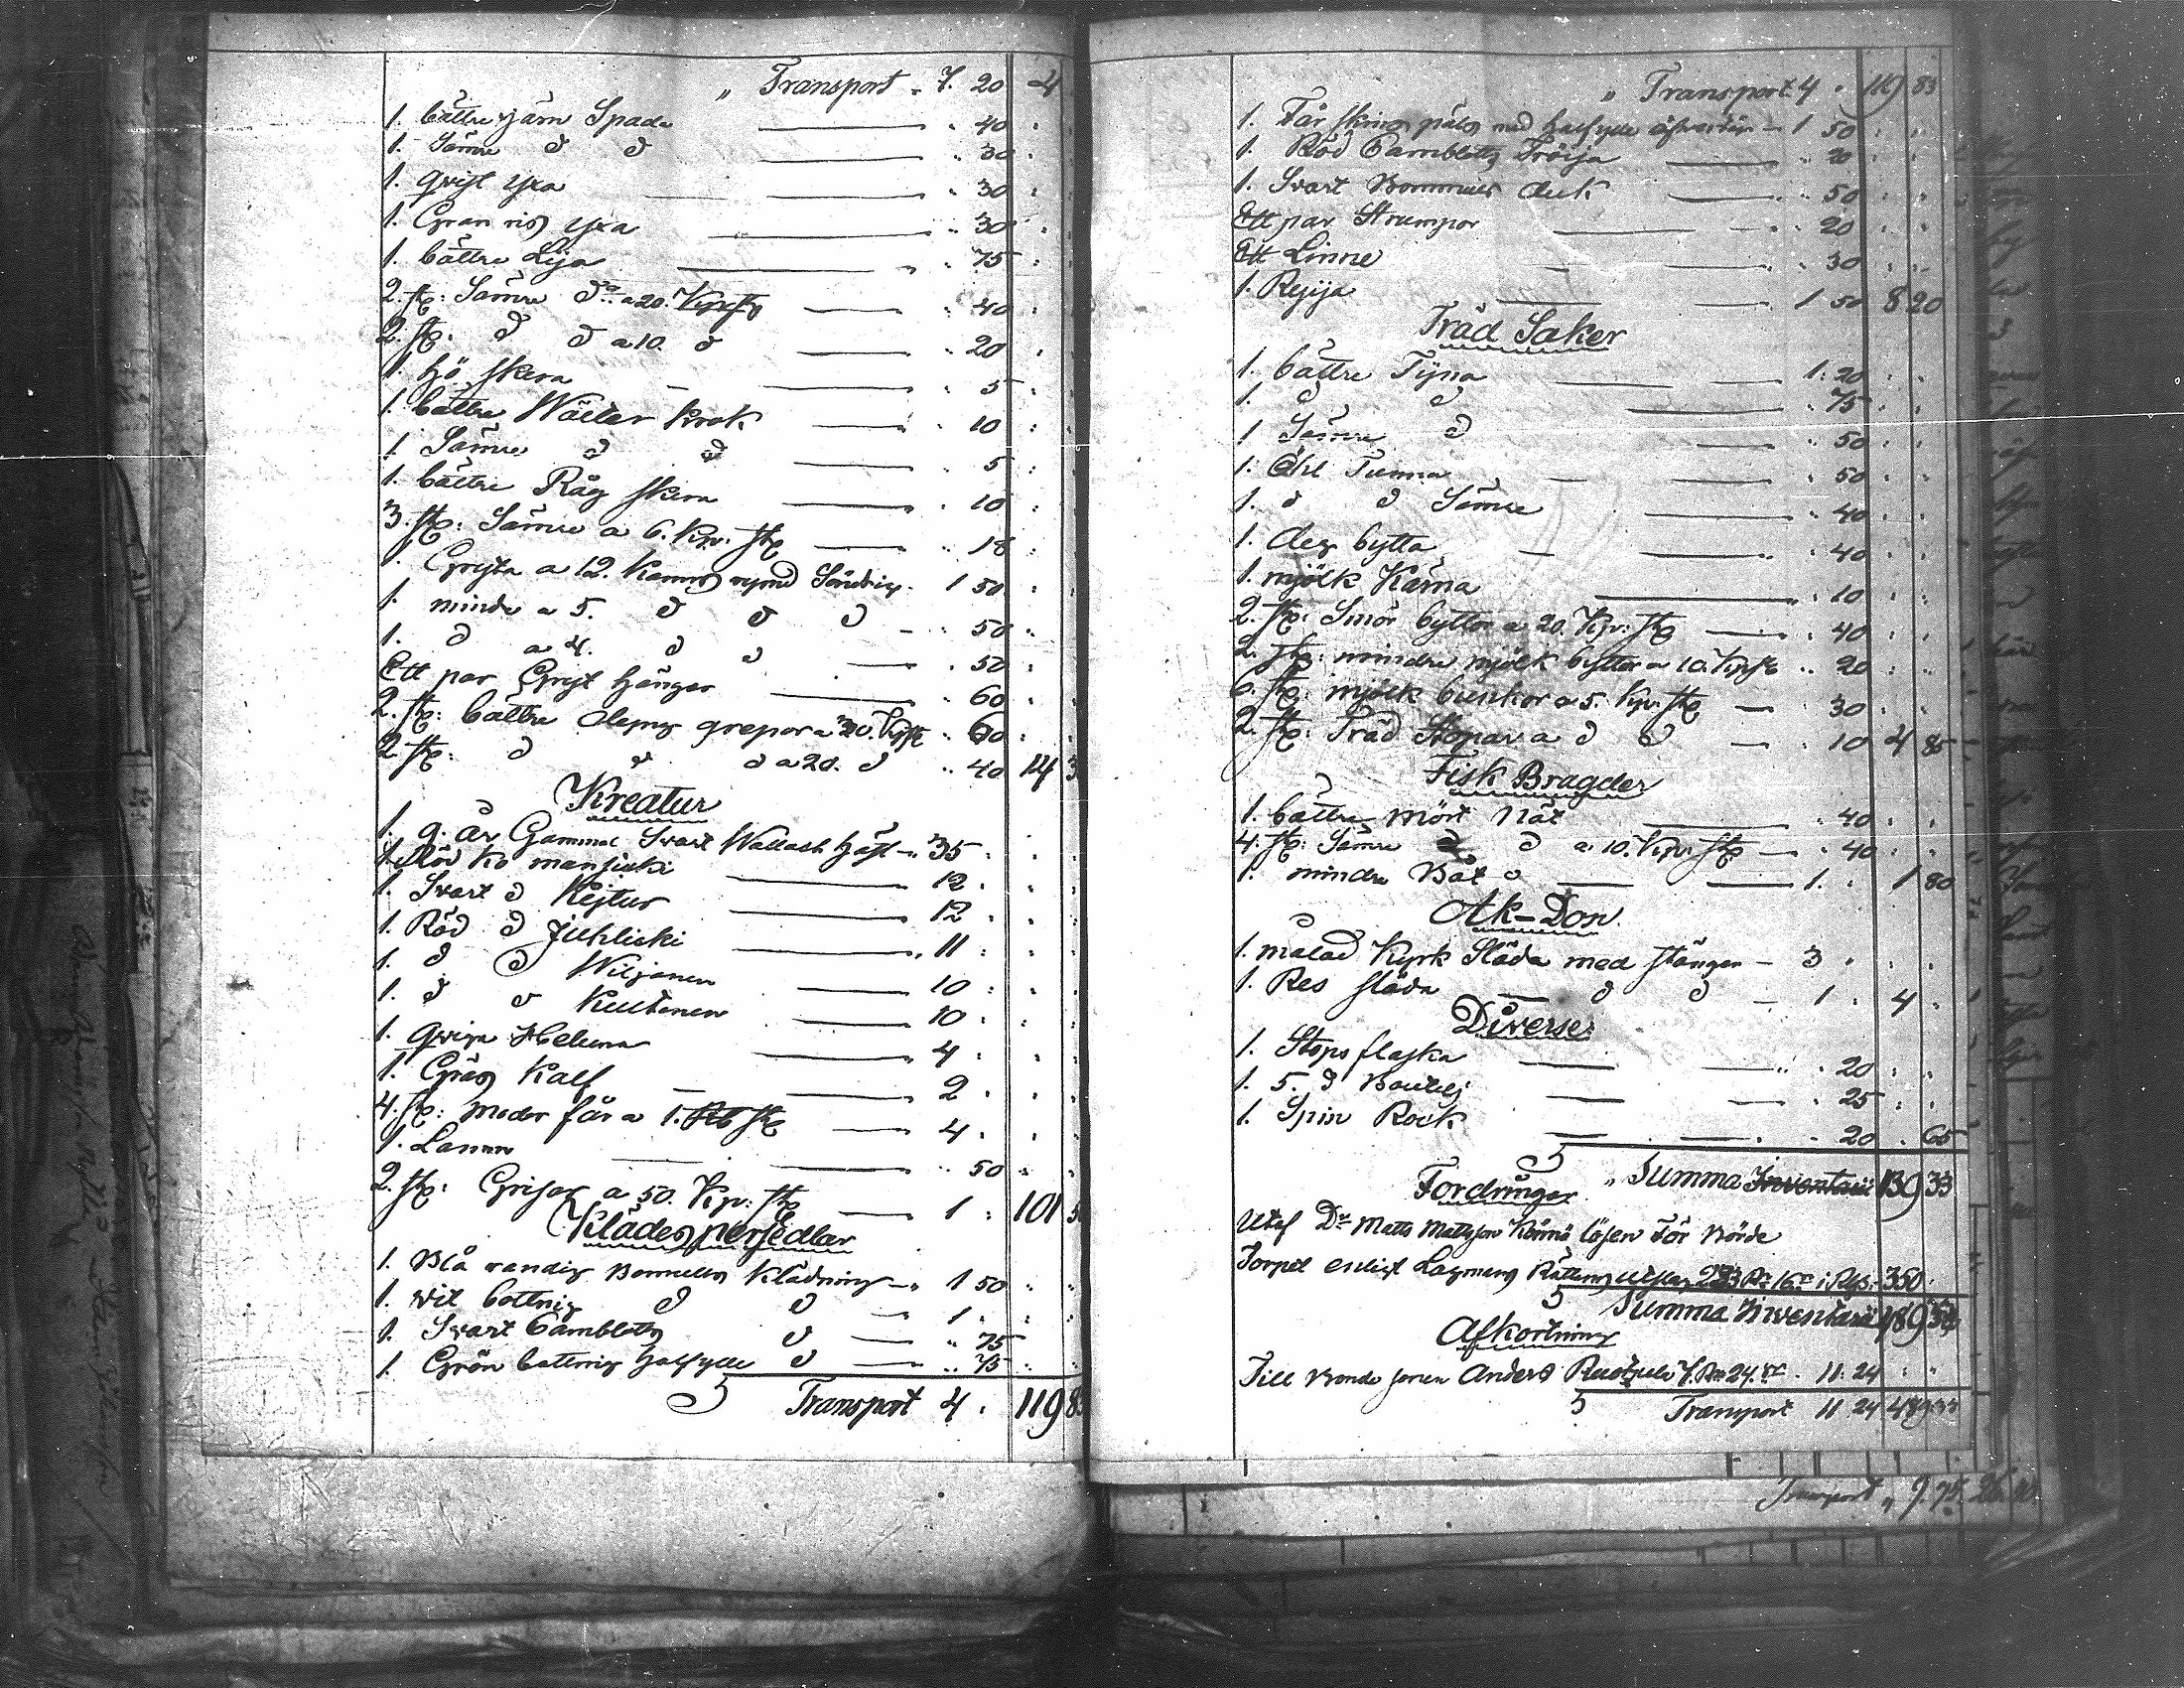 " Transport " 7. 20 4
1. bättre järn Spade " 40
1. Sämre d d " 30
1. qvist yxa " 30
1. Gran ris yxa " 30
1. bättre Lija " 75
2. st: Sämre do a 20. Kp st " 40
2. st: d d a 10. d " 20
1. hö skera " 5
1. bättre Wäller krok " 10
1 Sämre d d " 5
1. bättre Råg skera " 10
3. st: Sämre a 6. Kp: st " 18
1. Gryta a 12. Kanns rymd Söndrig 1 50
1. mindre a 5. d d d " 50
1. d a 4. d d " 50
Ett par Gryt hängor " 60
2. st: bättre grepor a 30. Kp st " 60
2 st: d d d a 20. d " 40 14
Kreatur
1. 9. år Gammal Svart Wallach häst " 35
1. Röd Ko mansicki 12
1. Svart d Kejtus 12
1. Röd d Juhlicki 11
1. d d Wiljanen 10
1. d d Kuutonen 10
1. qviga Heluna 4
1. Gräs Kalf 2
4. st: moder får a 1. Rb st 4
1. Lamm " 50
2. st: Grisar a 50. Kp: st 1 101
Klädes persedlar
1. Blå randig Bomulls Klädning " 1 50
1. vit bottnig d d 1
1. Svart Camblotts d " 75
1 Grön bottnig halfylle d " 75
Transport 4 119 8
" Transport 4 " 119 83
1. Får skins päls med halfylle 1 50
1. Röd Camblotts Tröija
1. Svart Bommuls duk " 50
Ett par Strumpor " 20
Ett Linne " 30
1. Rejija 1 50 8 20
Träd Saker
1. bättre Tyna 1. 20
1. d d " 75
1 Sämre d " 50
1. Öhl Tunna " 50
1. d d Sämre " 40
1. deg bytta " 40
1. mjölk Kärna " 10
2. st: Smör byttor a 20. Kp: st " 40
2. st: mindre mjölk byttor a 10. Kp st " 20
6. st: mjölk bunkor a 5. Kp: st " 30
2. st: Träd Stopar a d d " 10 4 85
Fisk Bragder
1. bättre mört nät " 40
4. st: Sämre d d a 10. Kp: st " 40
1. mindre Båt 1. " 1 80
Ak-Don
1. målad Kyrk Släda med stänger 3
1. Res släda d d 1 4
Diverse
1. Stops flaska " 20
1 5. d Boutelj " 25
1. Spin Rock " 20 65
" Summa 139 33
Fordringar
Utaf Matts Mattsson lösen För Börde
Torpet enligt Lagmans Rättens utslag 350
Summa Inventarii 489 33
Afkortning
Till Bonde sonen Anders 11. 24
Transport 11 24 489 33
Transport " 9. 75